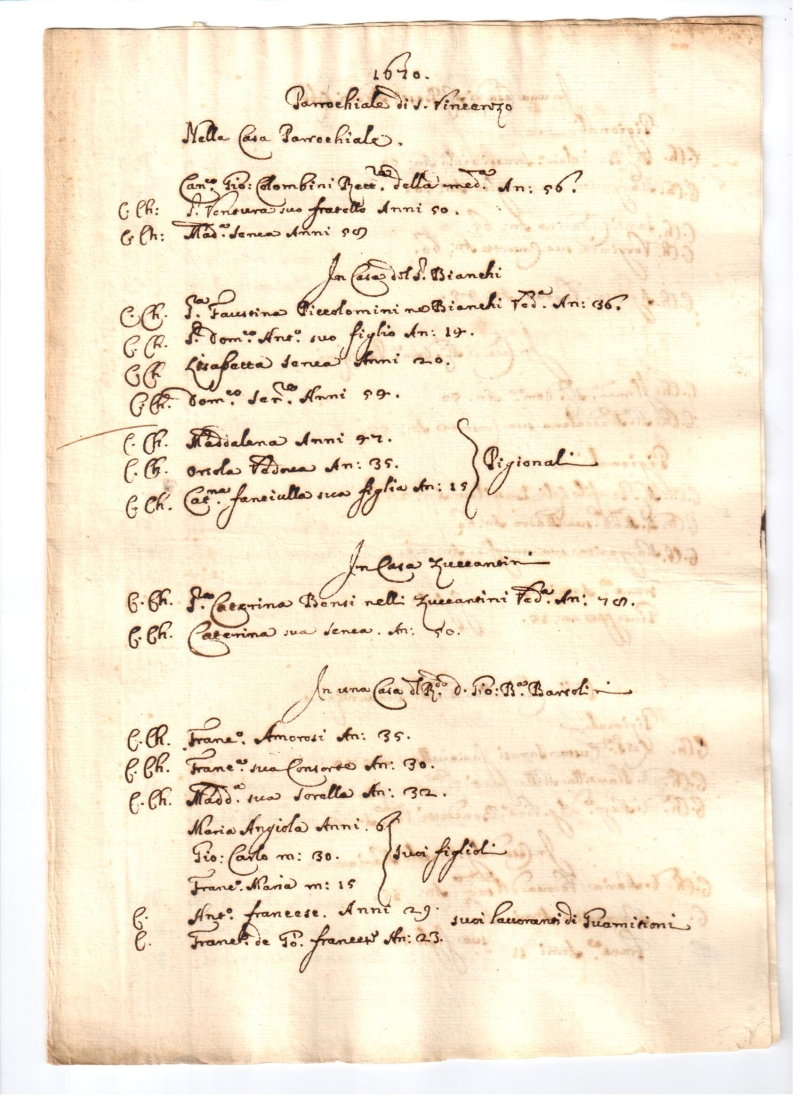 1670.
Parrochiale di S. Vincenzo
Nella Casa Parrochiale.
Can.co Gio: Colombini Rett.re della med.a An: 56.
C. Ch: S.r Ventura suo fratello Anni 50.
C. Ch: Mad.a Serva Anni 58
In Casa del S.r Bianchi
C. Ch. S.ra Faustina Piccolomini ne Bianchi Ved.a An: 36.
C. Ch. S.r Dom.co Ant.o suo figlio An: 19.
C. Ch. Lisabetta Serva Anni 20.
C. Ch. Dom.co Ser.re Anni 59.
C. Ch. Maddalena Anni 47.
C. Ch. Orsola Vedova An: 35.
C. Ch. Cat.na fanciulla sua figlia An: 15
Pigionali
In Casa Zuccantini
C. Ch. S.ra Caterina Bonsi nelli Zuccantini Ved.a An: 78.
C. Ch. Caterina sua Serva. An: 50.
In una Casa del R.do d. Gio: B.a Bartolini
C. Ch. Franc.o Amorosi An: 35.
C. Ch. Franc.a sua Consorte An: 30.
C. Ch. Madd.a sua Sorella An: 32.
Maria Angiola Anni 6
Gio: Carlo m: 30.
Franc.o Maria m: 15
suoi figlioli
C. Ant.o francese. Anni 29.
C. Franc.o de Go. francese An: 23.
suoi lavoranti di Guarnitioni